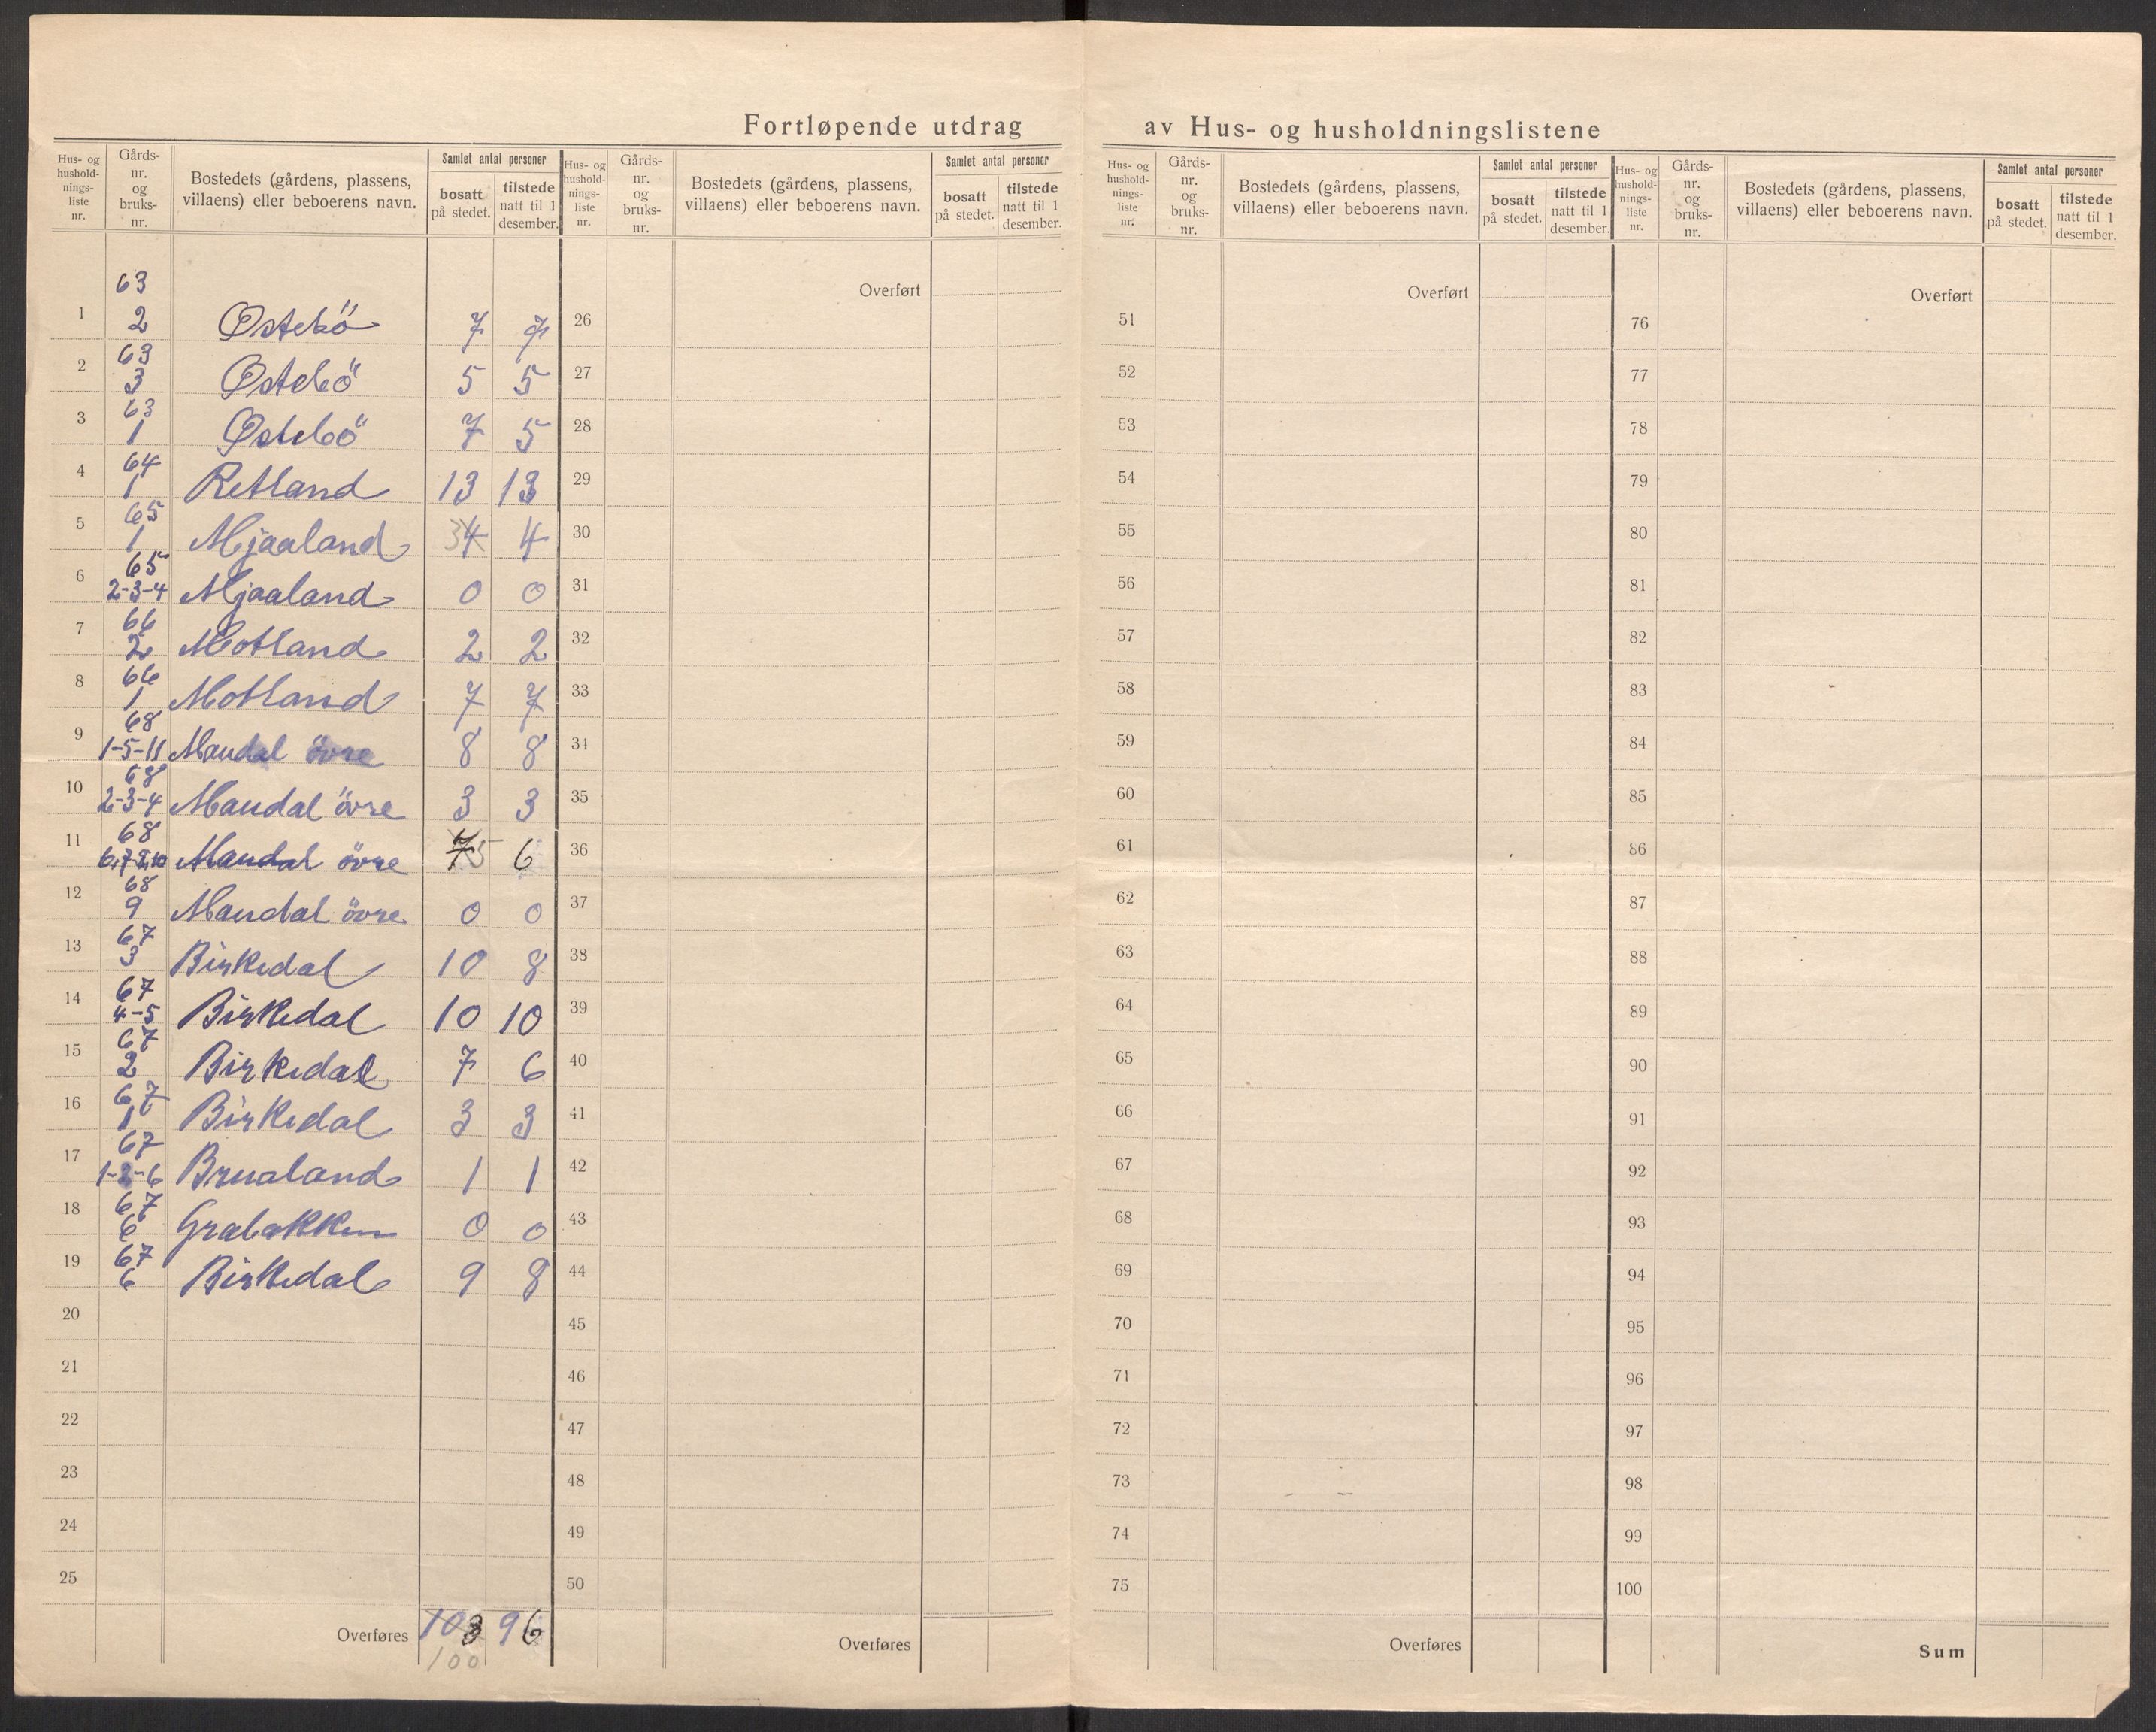 Fortløpende utdrag av Hus- og husholdningslistene
Hus- og hushold-nings-liste nr. Gårds-nr. og bruks-nr. Bostedets (gårdens, plassens, villaens) eller beboerens navn. Samlet antal personer bosatt på stedet. tilstede natt til 1 desember.
1 63 2 Østebö 7 7
2 63 3 Østebö 5 5
3 63 1 Østebö 7 5
4 64 1 Retland 13 13
5 65 1 Mjaaland 3 4 4
6 65 2-3-4 Mjaaland 0 0
7 66 2 Motland 2 2
8 66 1 Motland 7 7
9 68 1-5-11 Maudal övre 8 8
10 68 2-3-4 Maudal övre 3 3
11 68 6,7-8,10 Maudal övre 7 5 6
12 68 9 Maudal övre 0 0
13 67 3 Birkedal 10 8
14 67 4-5 Birkedal 10 10
15 67 2 Birkedal 7 6
16 67 1 Birkedal 3 3
17 67 1-2-6 Brualand 1 1
18 67 6 Grabakken 0 0
19 67 6 Birkedal 9 8
20
21
22
23
24
25
Overføres 103 96
100
Hus- og hushold-nings-liste nr. Gårds-nr. og bruks-nr. Bostedets (gårdens, plassens, villaens) eller beboerens navn. Samlet antal personer bosatt på stedet. tilstede natt til 1 desember.
Overført
26
27
28
29
30
31
32
33
34
35
36
37
38
39
40
41
42
43
44
45
46
47
48
49
50
Overføres
Hus- og hushold-nings-liste nr. Gårds-nr. og bruks-nr. Bostedets (gårdens, plassens, villaens) eller beboerens navn. Samlet antal personer bosatt på stedet. tilstede natt til 1 desember.
Overført
51
52
53
54
55
56
57
58
59
60
61
62
63
64
65
66
67
68
69
70
71
72
73
74
75
Overføres
Hus- og hushold-nings-liste nr. Gårds-nr. og bruks-nr. Bostedets (gårdens, plassens, villaens) eller beboerens navn. Samlet antal personer bosatt på stedet. tilstede natt til 1 desember.
Overført
76
77
78
79
80
81
82
83
84
85
86
87
88
89
90
91
92
93
94
95
96
97
98
99
100
Sum